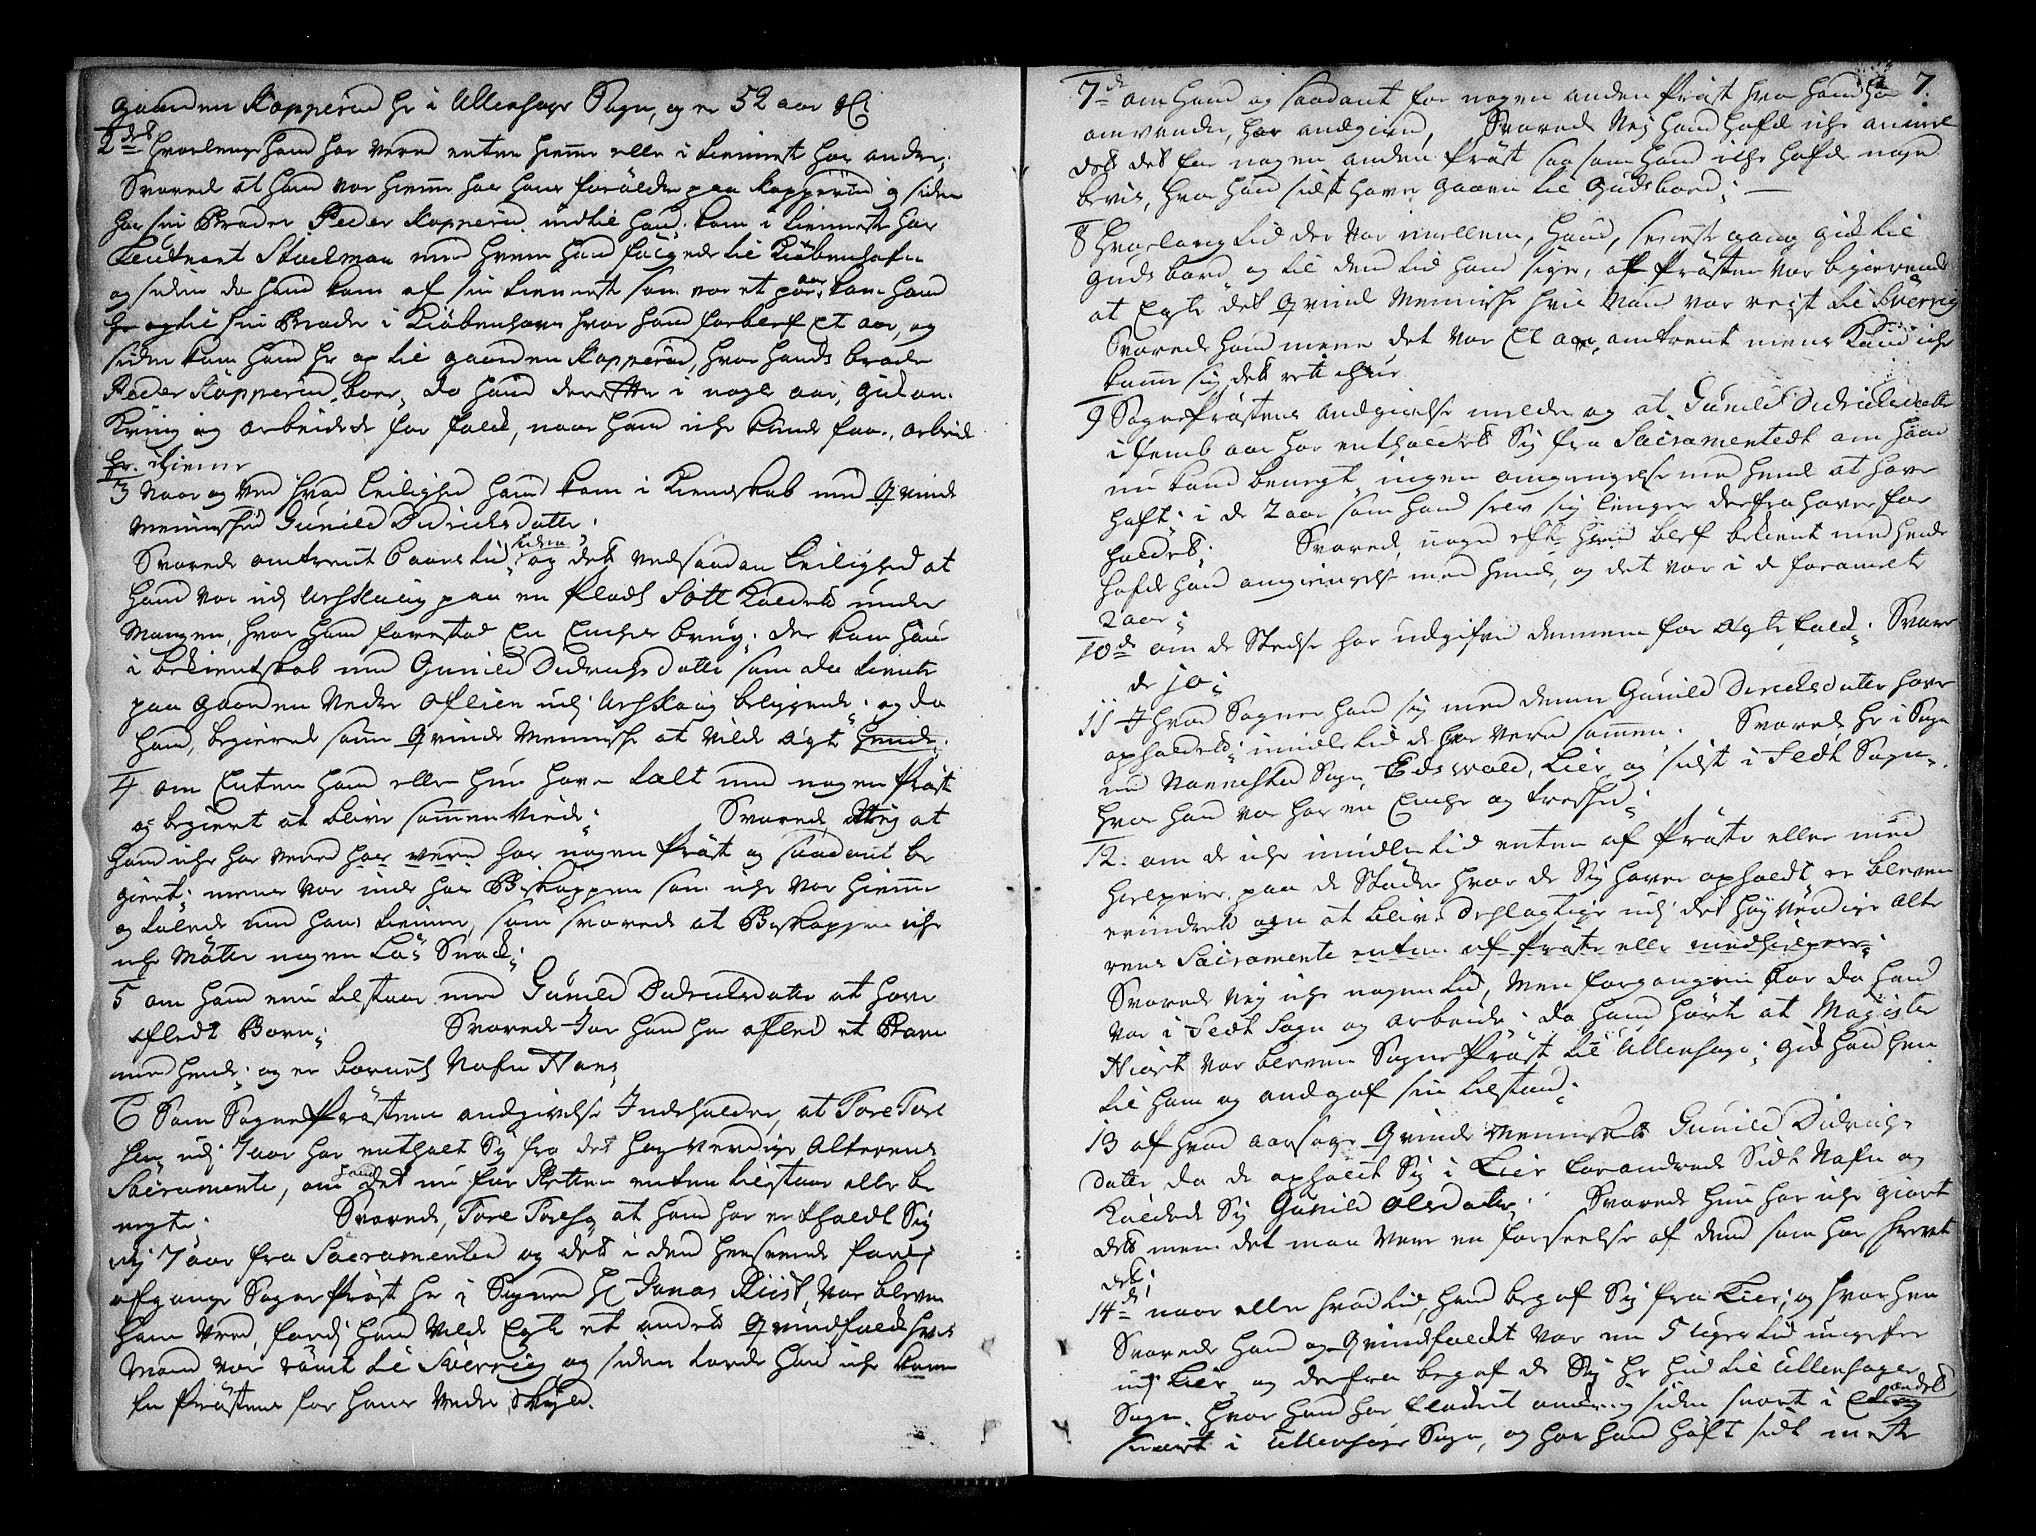 gaarden Kopperud her i Ullensager Sogn, og er 52 aar
2det hvorlenge hand har været enten hiemme eller i tienneste hos andre,
Svarede at hand var hiemme hos hans forældre paa Kopperud og siden
hos sin Broder Peder Kopperud indtil hand kom i tienneste hos
Leutnant Stuckman med hvem hand fulgede til Kiøbenhafn
og siden da hand kom af sin tienneste som var et par aar kom hand
til sin Broder i Kiøbenhavn hvor hand forblef Et aar, og
siden kom hand her op til gaarden Kopperud, hvor hands broder
Peder Kopperud boer, da hand derefter i nogle aar, gik om
kring og arbeidede for folk, naar hand iche kunde faae arbeid
her hiemme
3 Naar og ved hvad leilighed hand kom i kiendskab med Qvinde
Mennisket Gunild Didrichsdatter.
Svarede omtrent 6 aars tid siden og det ved saadan leilighed at
hand var udj Urskoug paa en Plads Sott kaldet under
Mangen, hvor hand forestod En Enches brug; der kom hand
i bekientskab med Gunild Didrichsdatter som da tiente
paa Gaarden Nedre Oflien udj Urskoug beliggende; og da
hand, begierede samme Qvinde Mennische at vilde Ægte hende.
4 om Enten hand eller hun haver talt med nogen Præst
og begiert at blive sammen viede; Svarede Nej at
hand iche har været hos nogen Præst og saadant be
giert; mens var inde hos Biskoppen som iche var hiemme
og talede med hans tienner, som svarede at Biskoppen iche
iche Møtte nogen Løs Snack;
5 om hand ene tilstaar med Gunild Didrichsdatter at have
afledt Børn; Svarede Jo hand har afled et Barn
med hende; og er barnets Nafn Hans
6 Som SognePræstens andgivelse Indeholder, at Tore Tore
sen udj 7 aar har entholt Sig fra det høyværdige Alterens
Sacramente, om hand det nu for Retten enten tilstaar eller be
negter. Svarede, Tore Toresen at hand har entholdt Sig
udj 7 aar fra Sacramentet og det i den henseende fordj
afgangne SognePræst her i Sognet Hr Jonas Riist, var bleven
ham vred, fordj hand vilde Egte et andet Qvindfolk hvis
Mand var rømt til Sverrig og siden torde hand iche komme
for Præsten for hans Vrede Skyld.
7.
7de om hand og saadant for nogen anden Præst hvor hand sig
omvendte, har andgived, Svarede Nej hand hafde iche anmel
det det for nogen anden Præst saasom hand iche hafde nogen
bevis, hvor hand sidst haver gaaen til Guds bord; —
8 Hvorlang tid der var imellem, hand, seniste gang gik til
Guds bord, og til den tid hand siger, af Præsten var begierende
at Egte det Qvinde Menniske hvis Mand var reist til Sverrig
Svarede hand meener det var Et aar omtrent mens kand iche
komme sig det ret i hue
9 SognePræstens andgivelse melder og at Gunild Didrichsdatter
i femb aar har entholdet Sig fra Sacramentet om hand
nu kand benegte ingen omgiengelse med hende at have
haft i de 2 aar som hand selv sig lenger derfra haver for
holdet. Svarede, noget efter hand blef bekient med hende
hafde hand omgiengelse med hende, og det var i de foromelte
2 aar;
10de om de Stedse har udgifvet dennem for Ægte folk; Svare
de Jo;
11 I hvad Sogner hand sig med denne Gunild Didrichsdatter haver
opholdet; imidlertid de har været sammen. Svarede her i Sogn
ned Nannestad Sogn, Edsvold, Lier og sidst i Fedt Sogn
hvor hand var hos en Enche og treshed;
12. om de iche imidlertid enten af Præster eller med
hielpere paa de Stæder hvor de Sig haver opholdt er bleven
erindret om at blive deelagtige udj det høyværdige Alte
rens Sacramente enten af Præster eller medhielpere;
Svarede Nej iche nogen tid, Men forgangen aar da hand
var i Fedt Sogn og arbeide; da hand hørte at Magister
Hiort var bleven SognePræst til Ullensager; gik hand hen
til ham og andgaf sin tilstand;
13 af hvad aarsage Qvinde Mennisket Gunild Didrichs
datter da de opholdt Sig i Lier forandrede Sidt Nafn og
kaldede Sig Gunild Olsdatter; Svarede hun har iche giort
det men det maa være en forseelse af dend som har skrevet
det;
14de naar eller hvad tid, hand begaf Sig fra Lier, og hvorhen
Svarede hand og Qvindfolket var en 5 uger tid ungefer
udj Lier og derfra begaf de Sig her hid til Ullensager
Sogn, hvor hand har siden snart i Et andet
snart i Ullensager Sogn, og har hand haft sidt meste